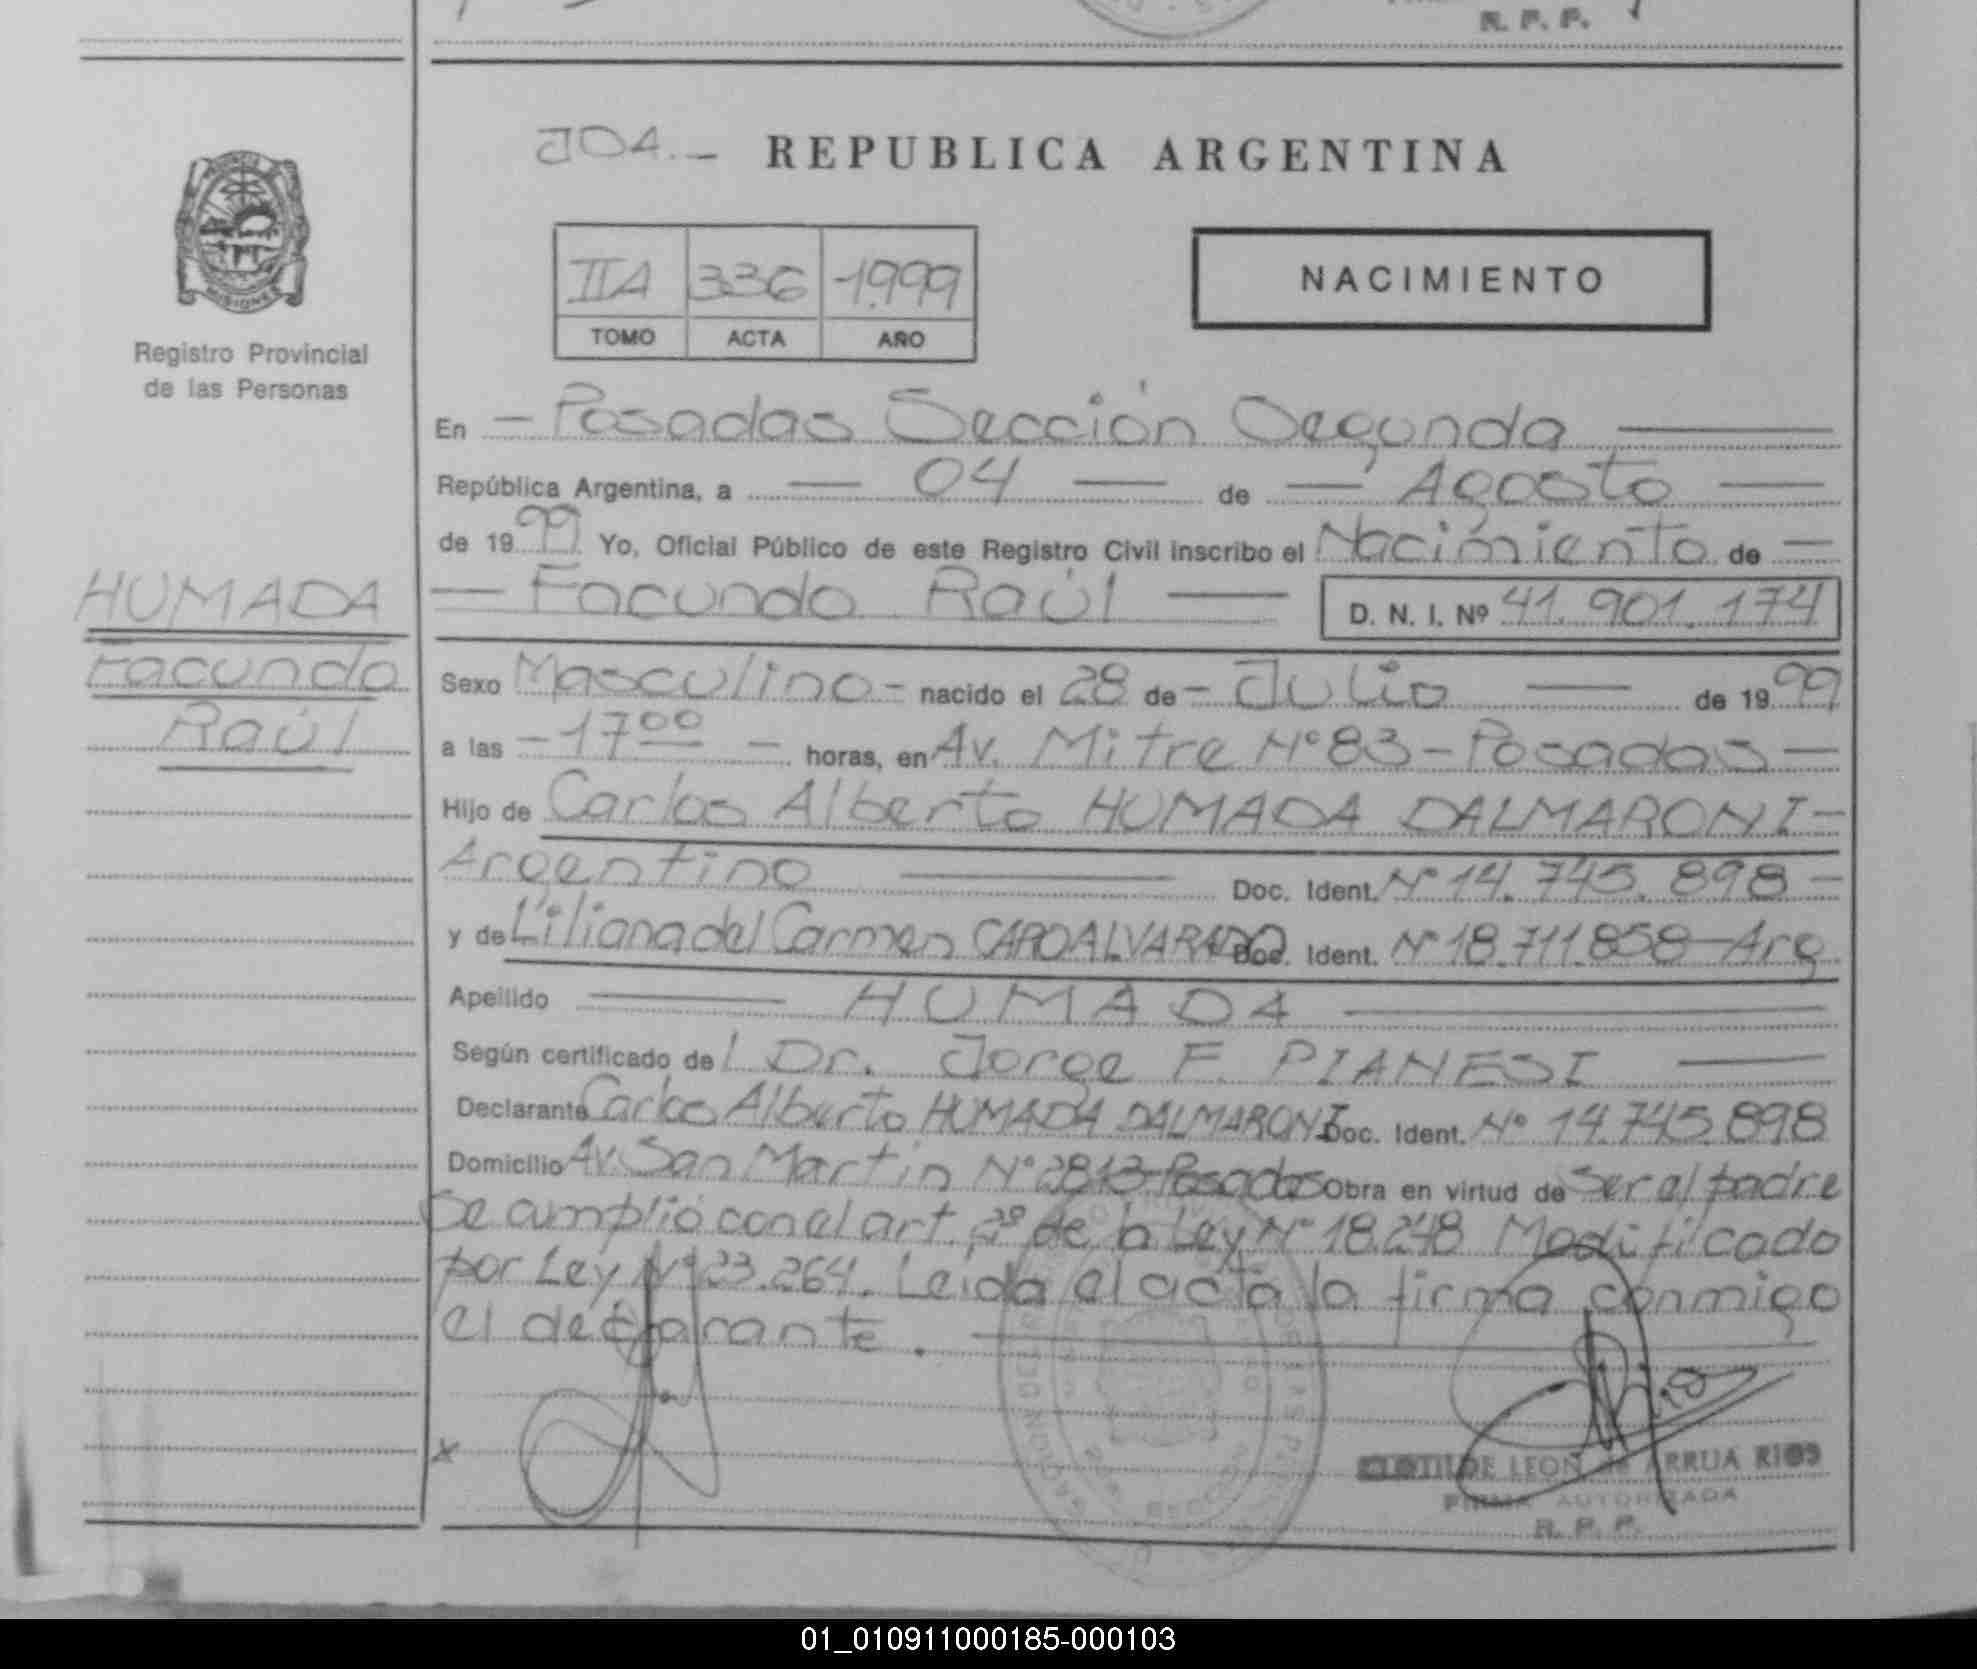 R. P. P.
JOA.-
REPUBLICA ARGENTINA
MISIONES
Registro Provincial
de las Personas
IIA 336 1999
TOMO ACTA AÑO
NACIMIENTO
En - Posadas Sección Segunda
República Argentina, a - 04 - de - Agosto -
de 1999 Yo, Oficial Público de este Registro Civil inscribo el Nacimiento de -
- Facundo Raúl - D. N. I. Nº 41.901.174
HUMADA
Facundo
Raúl
Sexo Masculino - nacido el 28 de - Julio - de 1999
a las - 17 00 - horas, en Av. Mitre Nº 83 - Posadas -
Hijo de Carlos Alberto HUMADA DALMARONI -
Argentino - Doc. Ident. Nº 14.745.898 -
y de Liliana del Carmen CARO ALVARADO Doc. Ident. Nº 18.711.858 - Arg
Apellido - HUMADA -
Según certificado del Dr. Jorge F. PIANESI -
Declarante Carlos Alberto HUMADA DALMARONI Doc. Ident. Nº 14.745.898
Domicilio Av. San Martin Nº 2813 - Posadas Obra en virtud de Ser el padre
Se cumplió con el art. 2º de la Ley Nº 18.248 Modificado
por Ley Nº 23.264. Leida el acta la firma conmigo
el declarante.
x
CLOTILDE LEON de ARRUA RIOS
FIRMA AUTORIZADA
R. P. P.
01_010911000185-000103